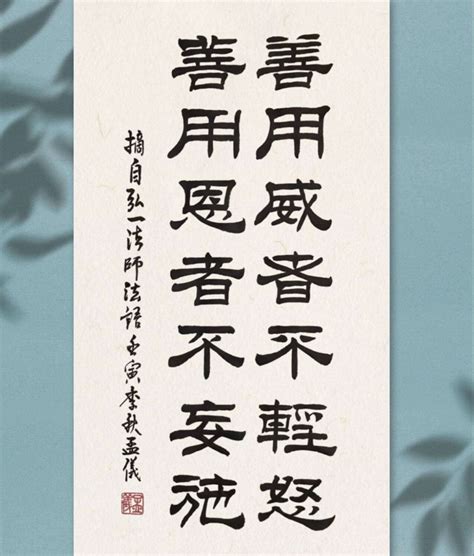 善用威者不輕怒
善用恩者不妄施
摘自弘一法師法語壬寅季秋孟儀